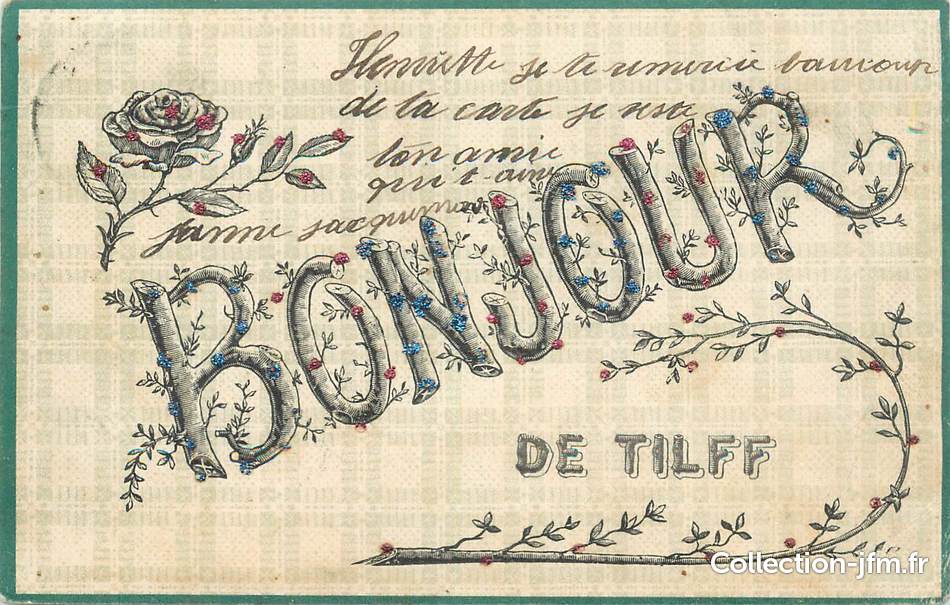 Henriette je te remercie baucoup
de la carte je reste
ton amie
qui t'aime
BONJOUR
DE TILFF
Collection-jfm.fr